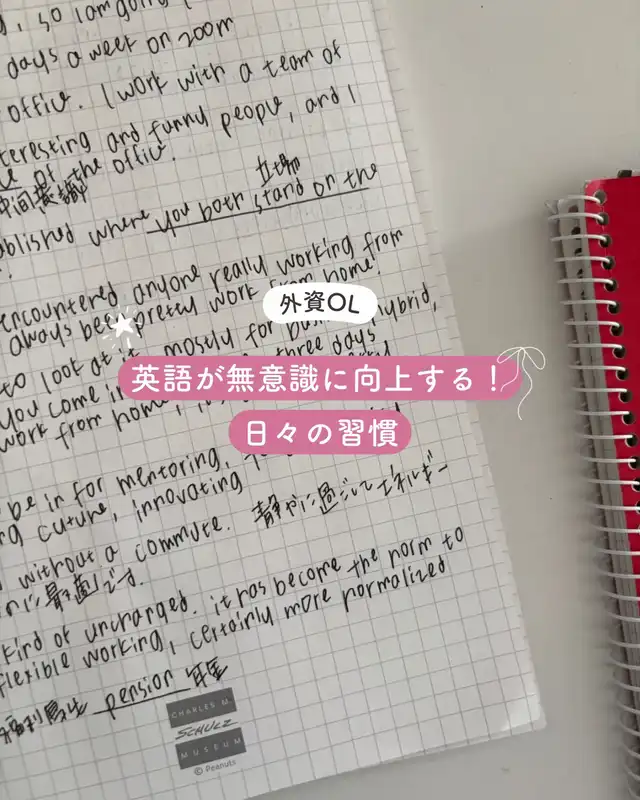 , so I am going
days a week on zoom
office. I work with a team of
teresting and funny people, and I
of the office.
中間意識
立場
ablished where you both stand on the
encountered anyone really working from
always been pretty work from home!
外資OL
to look at it, mostly for hybrid,
you come in three days
英語が無意識に向上する!
work from home,
日々の習慣
be in for mentoring,
culture, innovating
without a commute. 静かに過ごしてエネルギー
最適です.
kind of uncharged. it has become the norm to
flexible working, certainly more normalized
福利厚生 pension 年金
CHARLES M.
SCHULZ
MUSEUM
© Peanuts